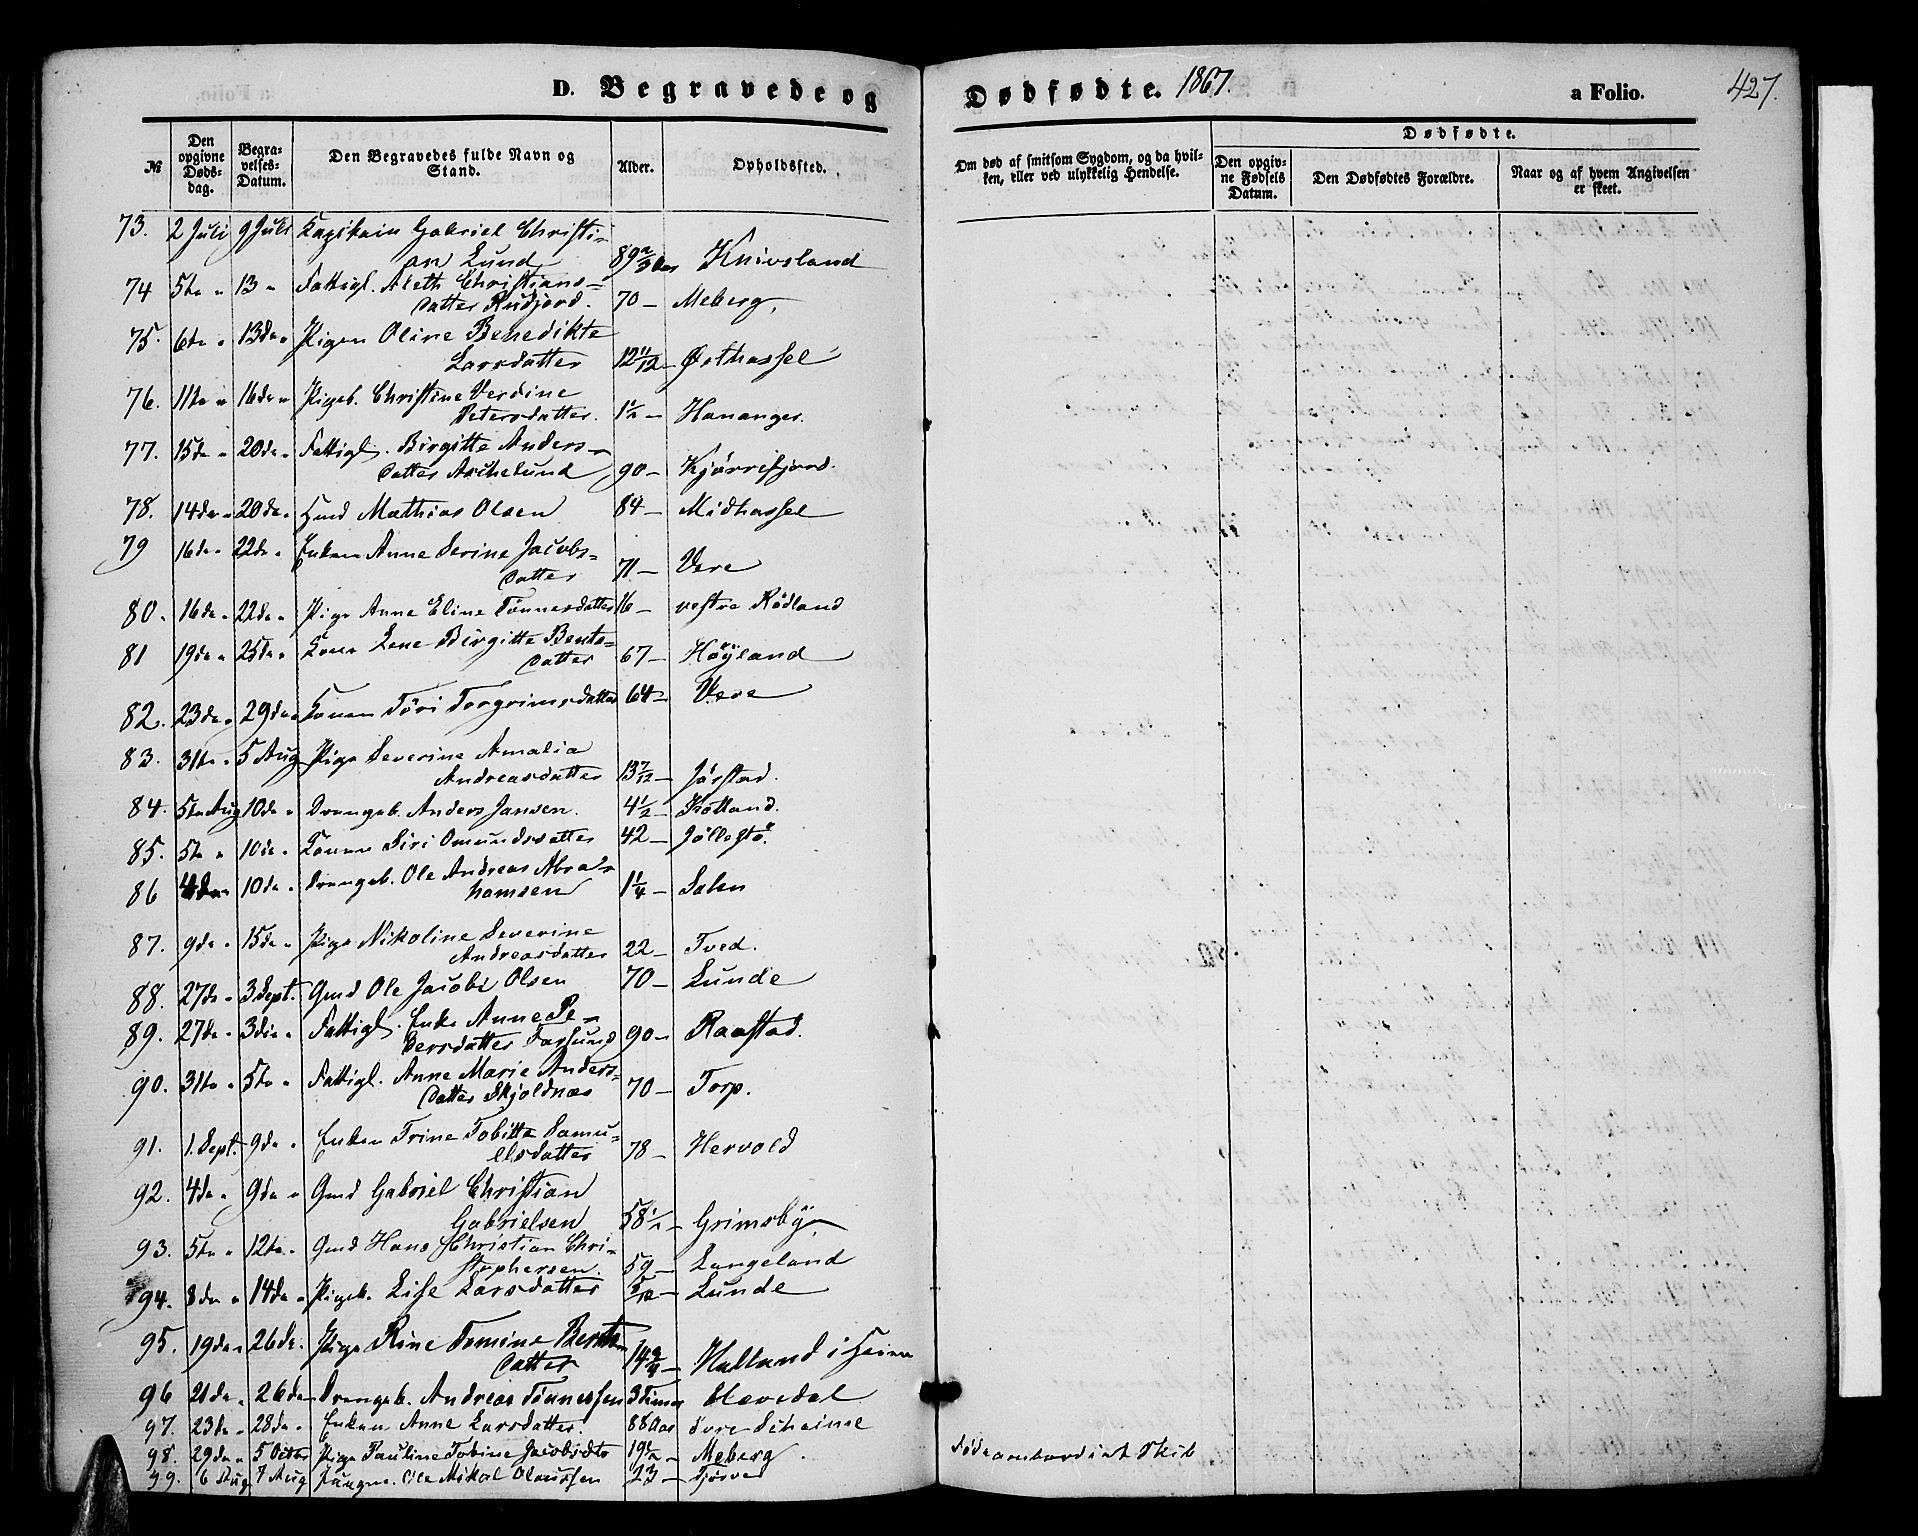 D. Begravede og Dødfødte. 1867. a Folio. 427.
№ Den opgivne Dødsdag. Begravelses-Datum. Den Begravedes fulde Navn og Stand. Alder. Opholdssted. Om død af smitsom Sygdom, og da hvilken, eller ved ulykkelig Hendelse. Dødfødte. Den opgivne Fødsels Datum. Den Dødfødtes Forældre. Naar og af hvem Angivelsen er skeet.
73. 2 Juli 9 Juli Kapitain Gabriel Christi-
an Lund 89 Knivsland
74 5te " 13 " Fattigl. Aleth Christians-
datter Rudjord. 70 – Meberg.
75. 6te " 13de " Pigen Oline Benedikte
Larsdatter 12 11/12 – Østhassel
76. 11te " 16de " Pigeb. Christine Verdine
Petersdatter. 1½ – Hananger.
77. 15de " 20de " Fattigl. Birgitte Anders-
datter Aschelund 90 – Kjørrefjord.
78. 14de " 20de " Gmd Mathias Olsen 84 – Midhassel
79 16de " 22de " Enken Anne Serine Jacobs-
datter 71 – Vere
80. 16de " 22de " Pige Anne Eline Tønnesdatter 16 – vestre Rødland
81 19de " 25de " Kone Lene Birgitte Bents-
datter 67 – Høyland
82. 23de " 29de " Konen Töri Torgrimsdatter 64 – Vere
83. 31te " 5 Aug Pige Severine Amalia
Andreasdatter 13 7/12 – Jørstad.
84. 5te Aug 10de " Drengeb. Anders Jansen. 4½ – Kotland.
85. 5te " 10de " Konen Siri Omundsdatter 42 – Jöllestö.
86 4de " 10de " Drengeb. Ole Andreas Abra-
hamsen 1¼ – Salen
87. 9de " 15de " Pige Nikoline Severine
Andreasdatter 22 – Tved.
88. 27de " 3 Sept. Gmd Ole Jacob Olsen 70 – Lunde
89. 27de " 3die " Fattigl. Enke Anne Pe-
dersdatter Farsund 90 – Raastad.
90. 31te " 5te " Fattigl. Anne Marie Anders-
datter Skjoldnæs 70 – Torp.
91. 1. Sept. 9de " Enken Trine Tobitte Samu-
elsdatter 78 – Hervold
92. 4de " 9de " Gmd Gabriel Christian
Gabrielsen 58½ – Grimsby
93. 5te " 12te " Gmd Hans Christian Chri-
stophersen. 59 – Langeland
94. 8de " 14de " Pigeb. Lise Larsdatter 5/12 – Lunde
95. 19de " 26de " Pige Rine Tomine Bents
datter 14¾ – Hatland i Heien
96 21de " 26de Drengeb. Andreas Tönnessen 3 Timer Havedal
97. 23de " 28de " Enken Anne Larsdatter. 88 Aar övre Scheime
98. 29de " 5 Octbr Pige Pauline Tobine Jacobsdtr 19½ – Meberg.
99. 6 Aug 7 Aug Ungm. Ole Mikal Olaussen 23 – Tjørve